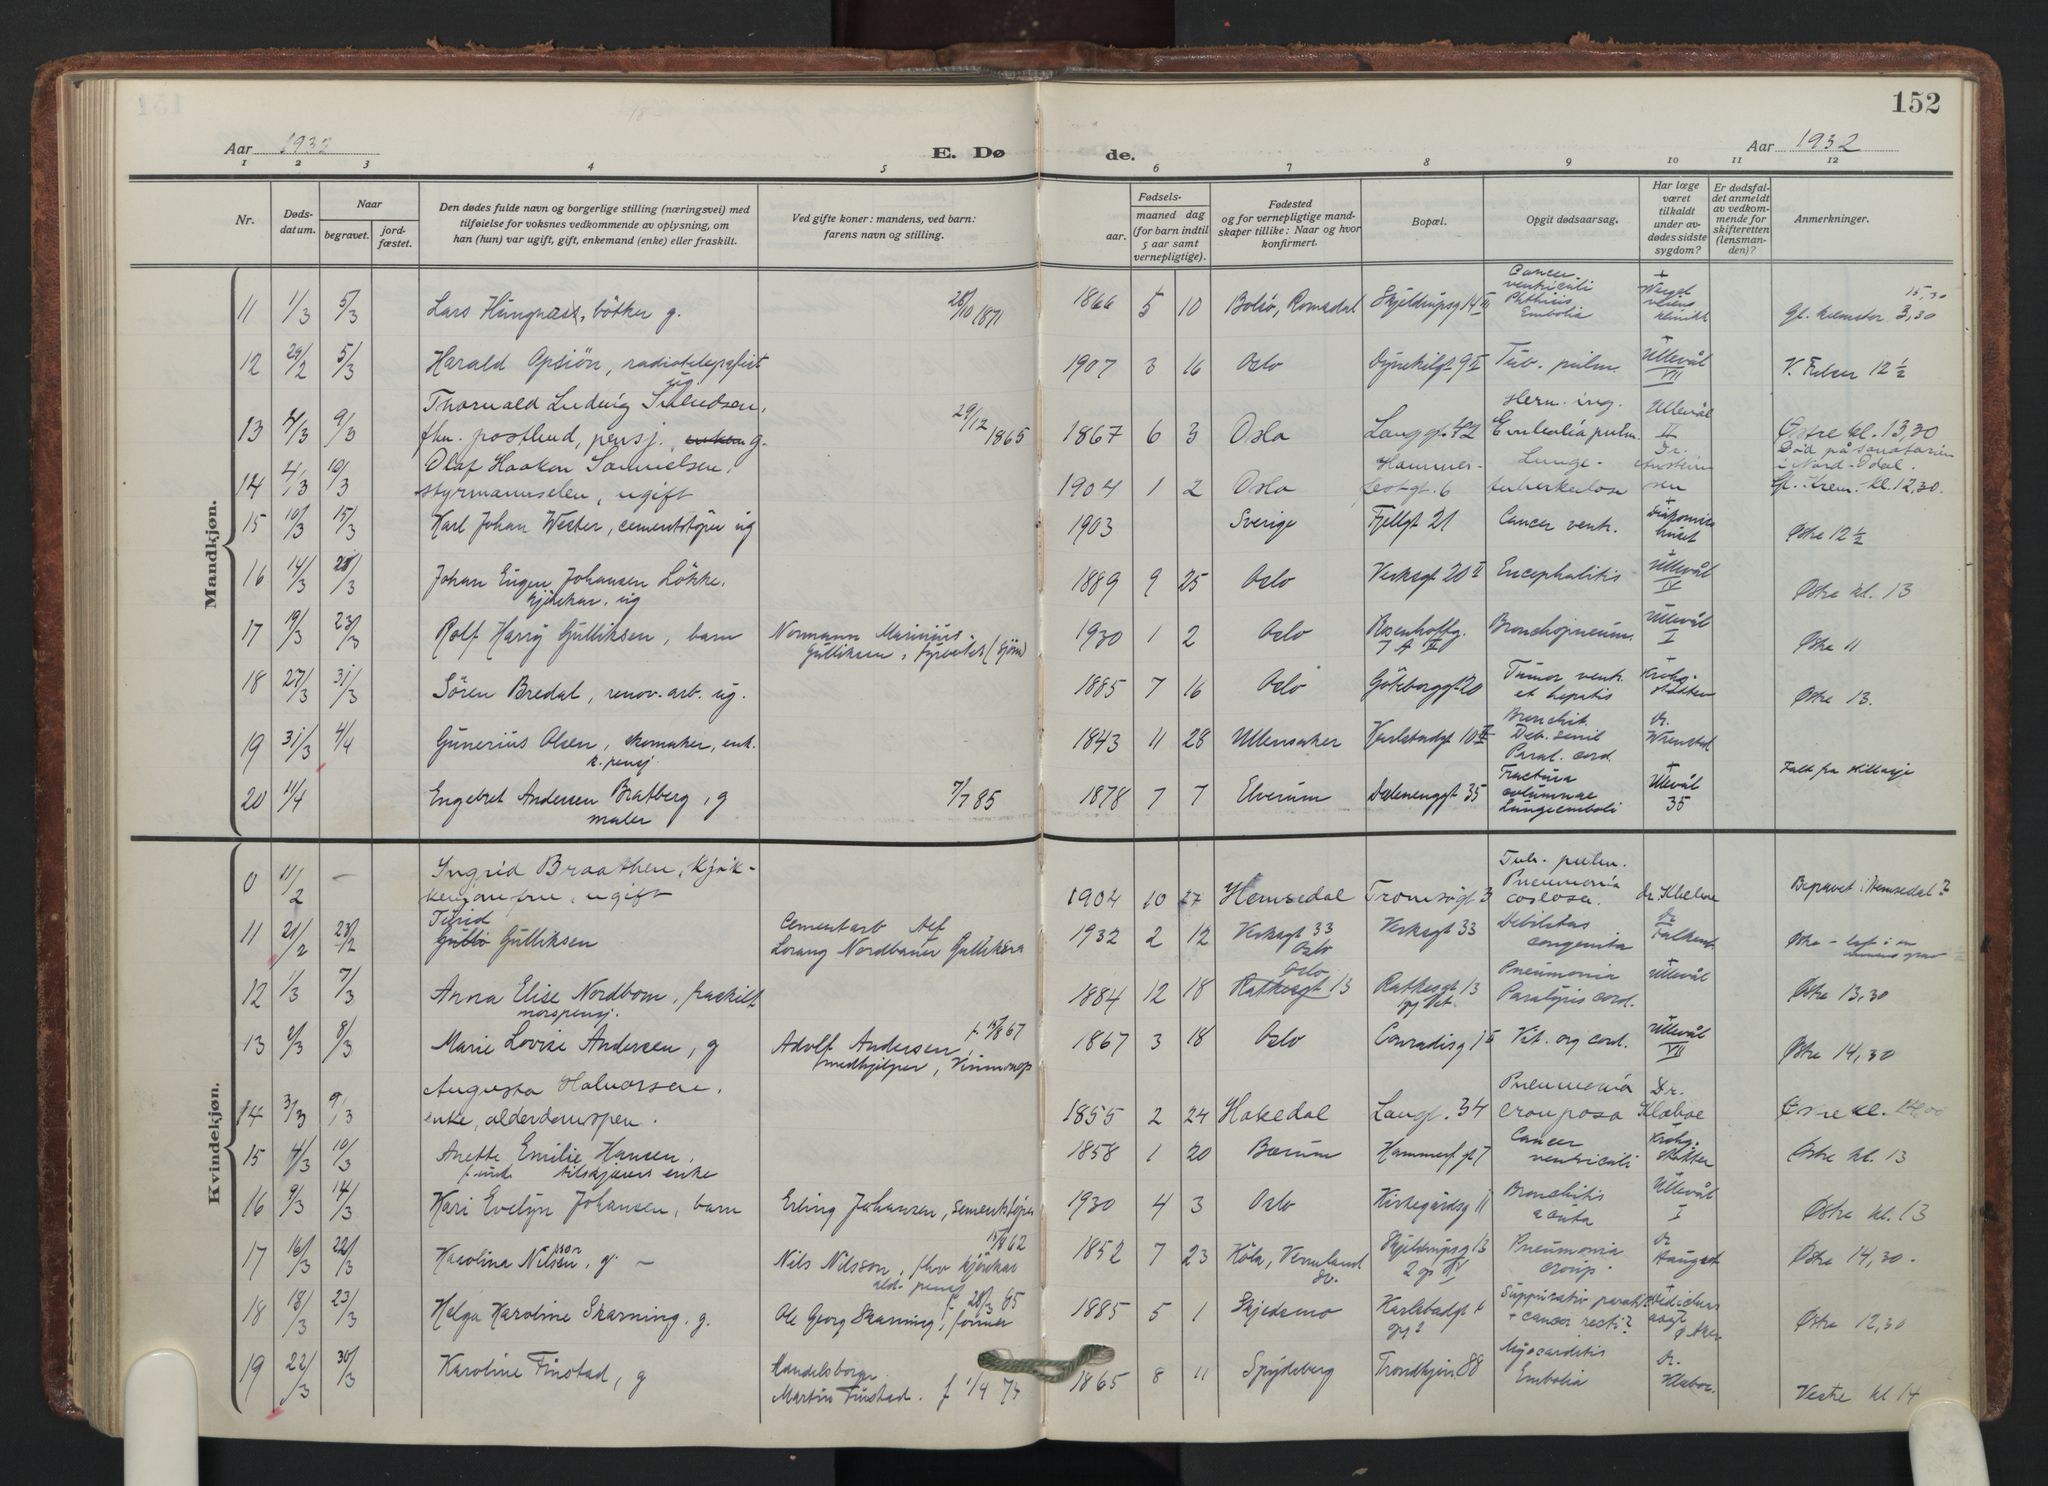 152
Aar 1932
E. Dø
de.
Aar 1932
1 2 3 4 5 6 7 8 9 10 11 12
Nr.
Døds-
datum.
Naar
begravet.
jord-
fæstet.
Den dødes fulde navn og borgerlige stilling (næringsvei) med
tilføielse for voksnes vedkommende av oplysning, om
han (hun) var ugift, gift, enkemand (enke) eller fraskilt.
Ved gifte koner: mandens, ved barn:
farens navn og stilling.
Fødsels-
aar.
maaned dag
(for barn indtil
5 aar samt
vernepligtige).
Fødested
og for vernepligtige mand-
skaper tillike: Naar og hvor
konfirmert.
Bopæl.
Opgit dødsaarsag.
Har læge
været
tilkaldt
under av-
dødes sidste
sygdom?
Er dødsfal-
det anmeldt
av vedkom-
mende for
skifteretten
(lensman-
den)?
Anmerkninger.
Mandkjøn.
11 1/3 5/3 Lars Hungnes, bötker g. 28/10 1871 1866 5 10 Bolsø, Romsdal Skjeldrupsg 14 II
Cancer
ventriculi
Phthisis
Embolia
klinikk
15,30
Gl. krematori 3,30
12 29/2 5/3 Harald Opsiön, radiotelegrafist ug. 1907 3 16 Oslo Dynekilgt 9 II Tub. pulm. Ullevål VII V. Aker 12 1/2
13 4/3 9/3 Thorvald Ludvig
fhv. postbud, pensj. g. 29/12 1865 1867 6 3 Oslo Langgt. 42
Hern. ing.
Embolia pulm.
Ullevål
II
Østre kl. 13,30
14 4/3 10/3 Olaf Haakon Samuelsen,
styrmannselev, ugift 1904 1 2 Oslo
Hammer-
festgt. 6
Lunge-
tuberkulose
Dr.
Død på sanatorium
i Nord-Odal.
Gl. Krem. kl. 12,30.
15 10/3 15/3 Karl Johan Wester, cementstöper ug 1903 Sverige Fjellgt 21 Cancer ventr.
Diakonisse
huset
Østre 12 1/2
16 14/3 Johan Eugen Johansen Lökke,
kjörekar, ug 1889 9 25 Oslo Verksgt 20 II Encephalitis Ullevål IV Østre kl. 13
17 19/3 23/3 Rolf Harry Gulliksen, barn
Normann Marinius
Gulliksen, fyrböter (sjöm)
1930 1 2 Oslo
Rosenhoffg.
7 A III
Bronchopneum. Ullevål I Østre 11
18 27/3 31/3 Sören Bredal, renov.arb. ug. 1885 7 16 Oslo Göteborggt 20
Tumor ventr.
et hepatis
Krohg-
støtten
Østre 13.
19 31/3 4/4 Gunerius Olsen, skomaker, enk.
k. pensj 1843 11 28 Ullensaker Karlstadgt 10 II
Bronchit.
Deb. senil
Paral. cord.
dr.
20 11/4 Engebret Andersen Bratberg, g
maler 7/7 85 1878 7 7 Elverum Dælenenggt 35
Fractura
columnae
Lungeemboli
Ullevål
35
Falt fra stillasje
Kvindekjøn.
0 11/2 — Ingrid Braathen, kjök-
kenjomfru, ugift 1904 10 27 Hemsedal Tromsögt 3
Tub. pulm.
Pneumonia
dr.
Begravet i Hemsedal?
11 21/2 23/2 Gulliksen
Cementarb
Lorang Nordbauer Gulliksen
1932 2 12 Verksgt 33
Oslo
Verksgt 33
Debilitas
congenita
dr
12 1/3 7/3 Anna Elise Nordbom, fraskilt
morspensj. 1884 12 18 Oslo
Rathkesgt 13
Rathkesgt 13
Pneumonia
Paralysis cord.
Ullevål Østre 13,30
13 2/3 8/3 Marie Lovise Andersen, g
Adolf Andersen
medhjelper, Vinmonop
1867 3 18 Oslo Conradisg 1 II Vit. org cord. Ullevål VII Østre 14,30
14 3/3 9/3 Augusta Halvorsen,
enke, alderdomspen. 1855 2 24 Hakedal Langt. 34
Pneumonia
crouposa
Dr.
Klæboe
Østre kl.
15 4/3 10/3 Anette Emilie Hansen,
tilskjærers enke 1858 1 20 Bærum Hammerf gt 7
Cancer
ventriculi
Krohg-
støtten
Østre kl. 13
16 9/3 14/3 Kari Evelyn Johansen, barn Erling Johansen, sementstöper 1930 4 3 Oslo Kirkegårdsg 11
Bronchitis
acuta
Ullevål
I
Østre kl. 13
17 16/3 22/3 Karolina Nilsson, g. —
Nils Nilsson, fhv kjörekar
ald. pensj
1852 7 23 Köla, Vermland
Sv.
Skjeldrupsg 13
2 op IV
Pneumonia
croup.
dr
Haugseth
Østre 14,30.
18 18/3 23/3 Helga Karoline Skarning, g. f. 28/3 85
Ole Georg Skarning, former
1885 5 1 Skjedsmo Karlstadgt
Suppurativ parotit
+ cancer recti?
Østre 12,30
19 22/3 30/3 Karoline Finstad, g
Handelsborger
Martin Finstad. f 1/4 74
1865 8 11 Spydeberg Trondhjem 88
Myocarditis
Embolia
dr.
Klæboe.
Vestre kl 14